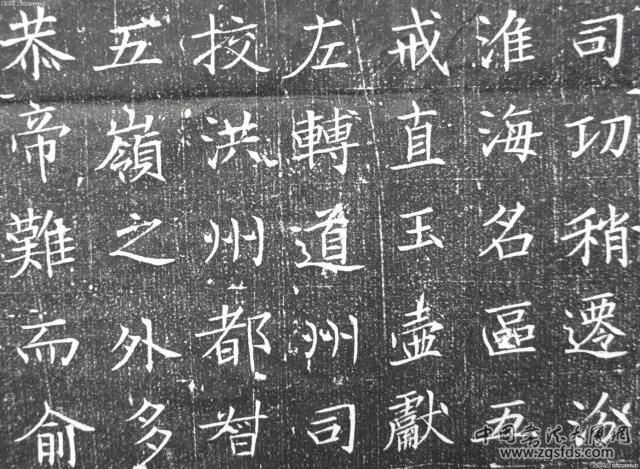 司功稍遷
淮海名區五
戒直玉壺獻
左轉道州司
挍洪州都督
五嶺之外多
恭帝難而俞
中国书法大师网
www.zgsfds.com